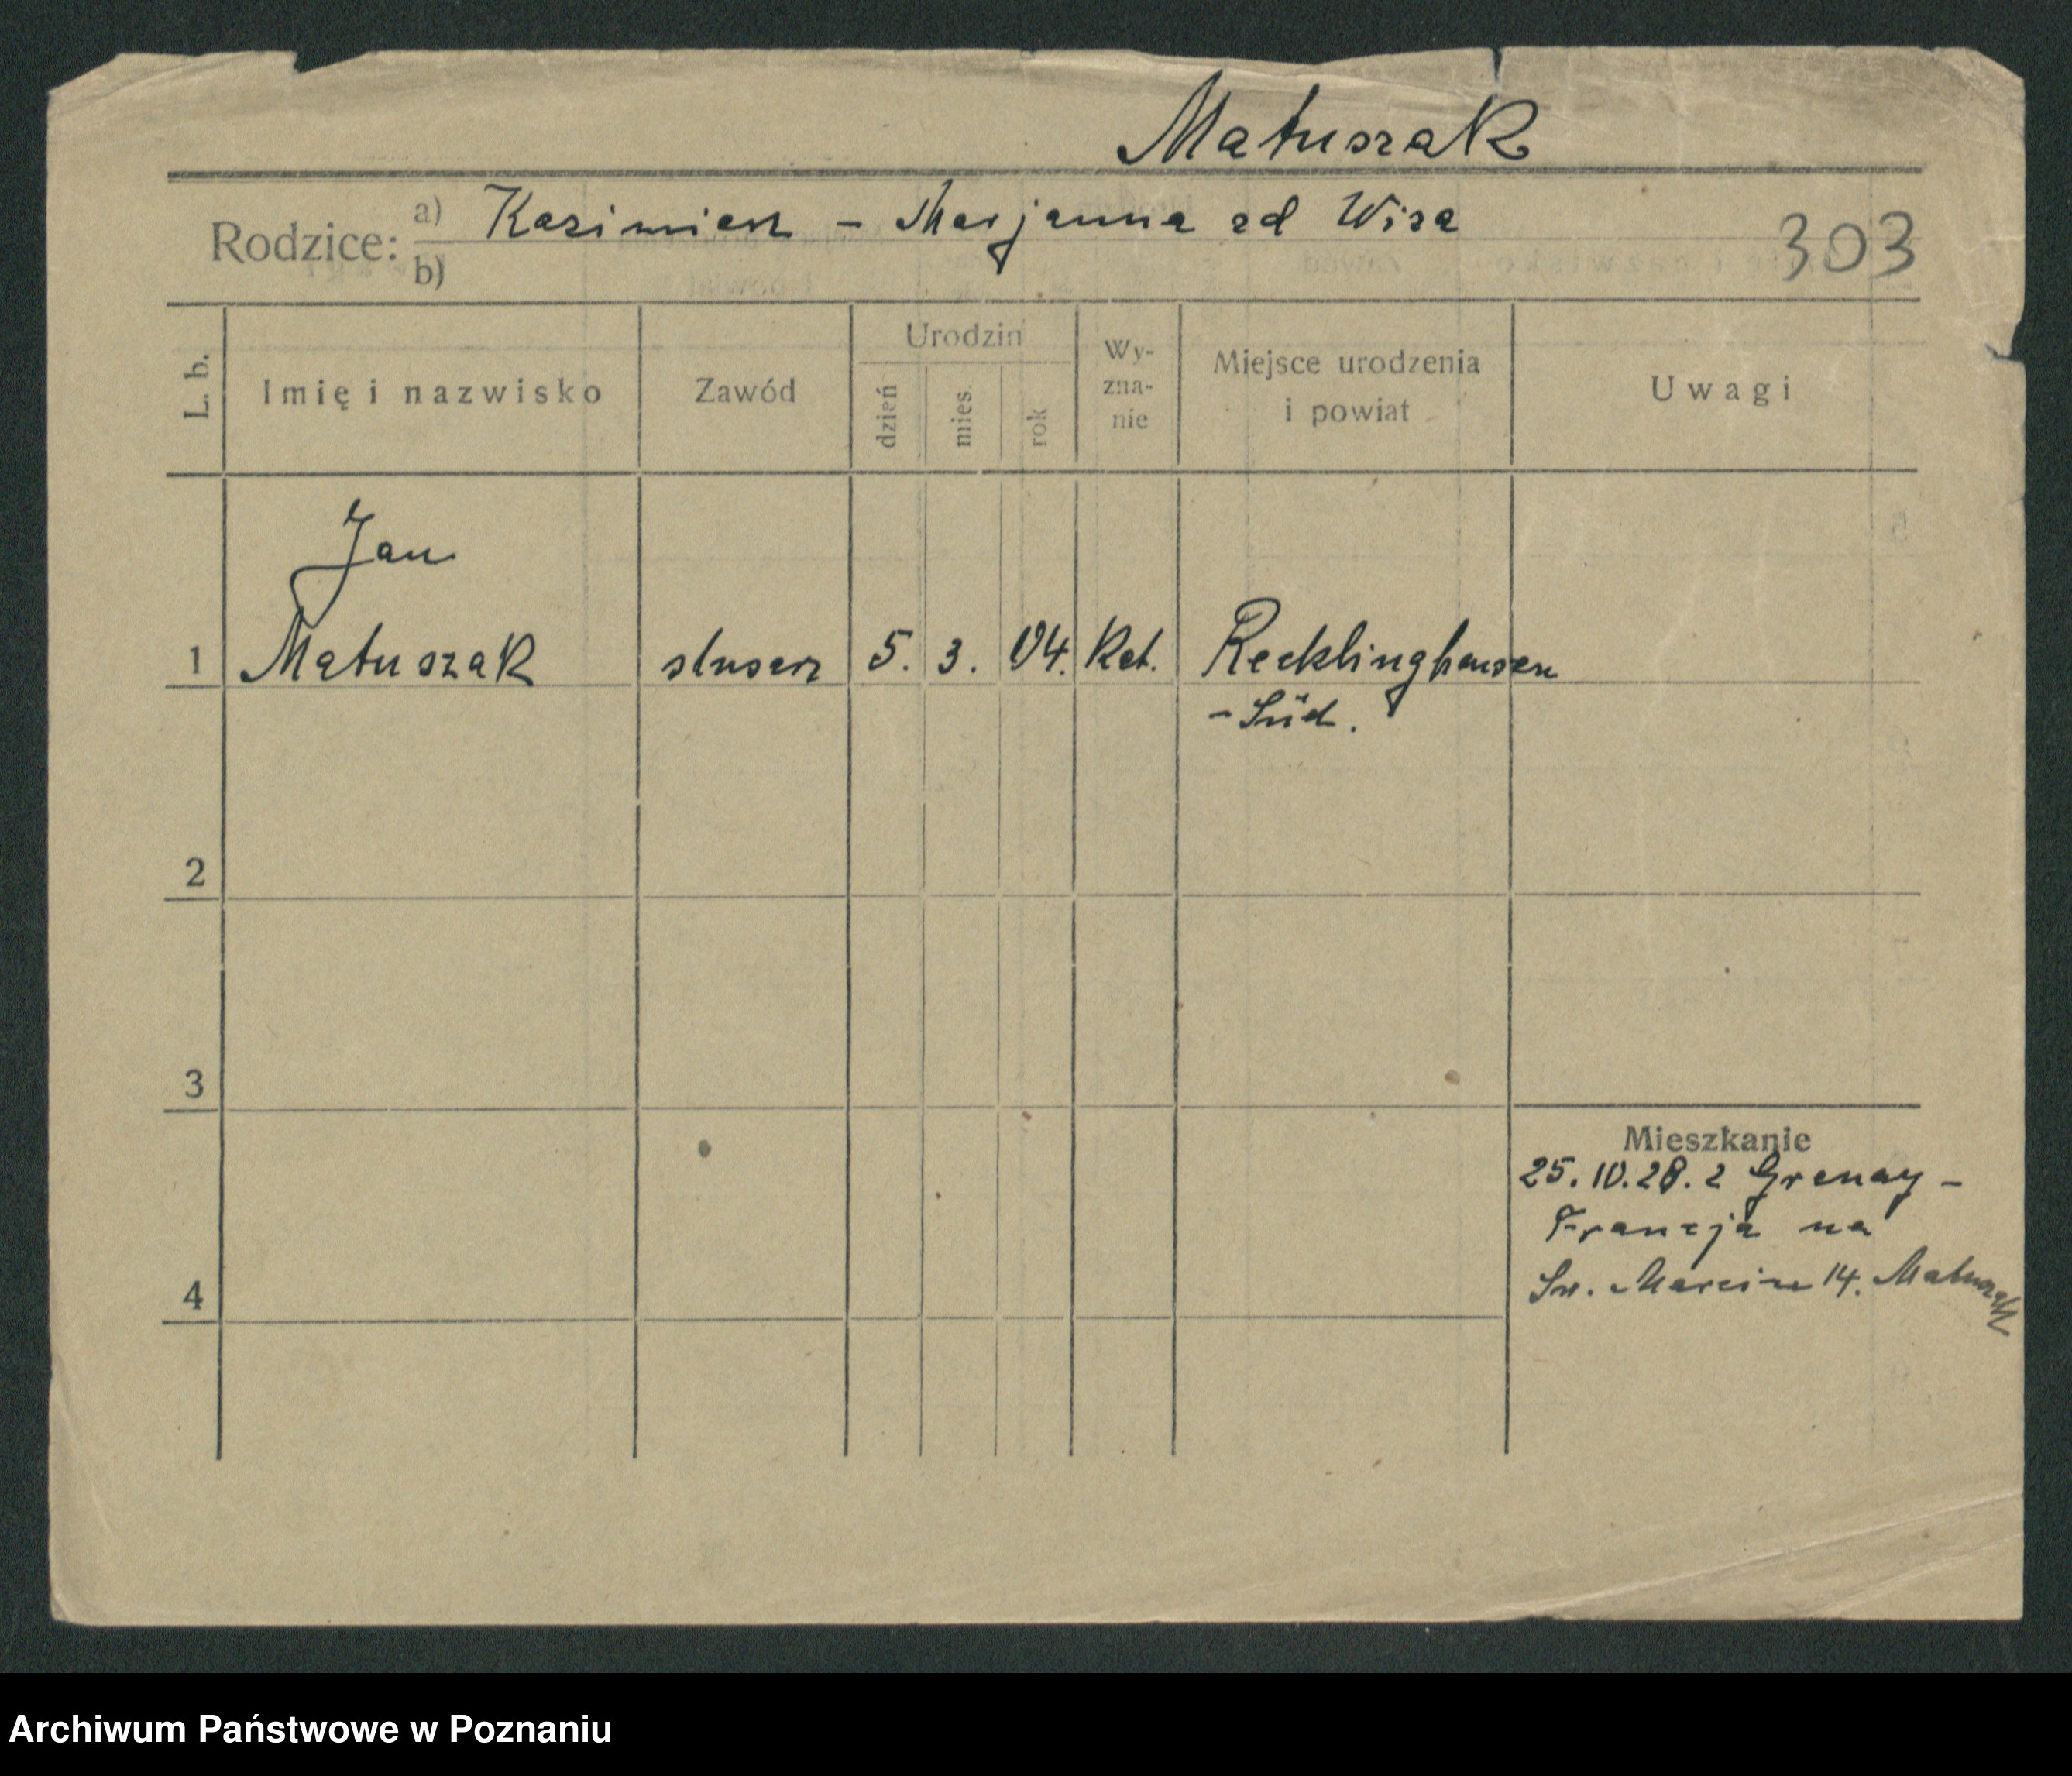 Matuszak
Rodzice: a) Kazimierz – Marjanna zd Wiza
b)
303
L. b.
Imię i nazwisko
Zawód
Urodzin
dzień
mies.
rok
Wy-
zna-
nie
Miejsce urodzenia
i powiat
Uwagi
Jan
1 Matuszak ślusarz 5. 3. 04. Kat. Recklinghausen
- Süd.
2
3
4
Mieszkanie
25.10.28. z Grenay –
Francja na
Św. Marcin 14. Matuszak
Archiwum Państwowe w Poznaniu